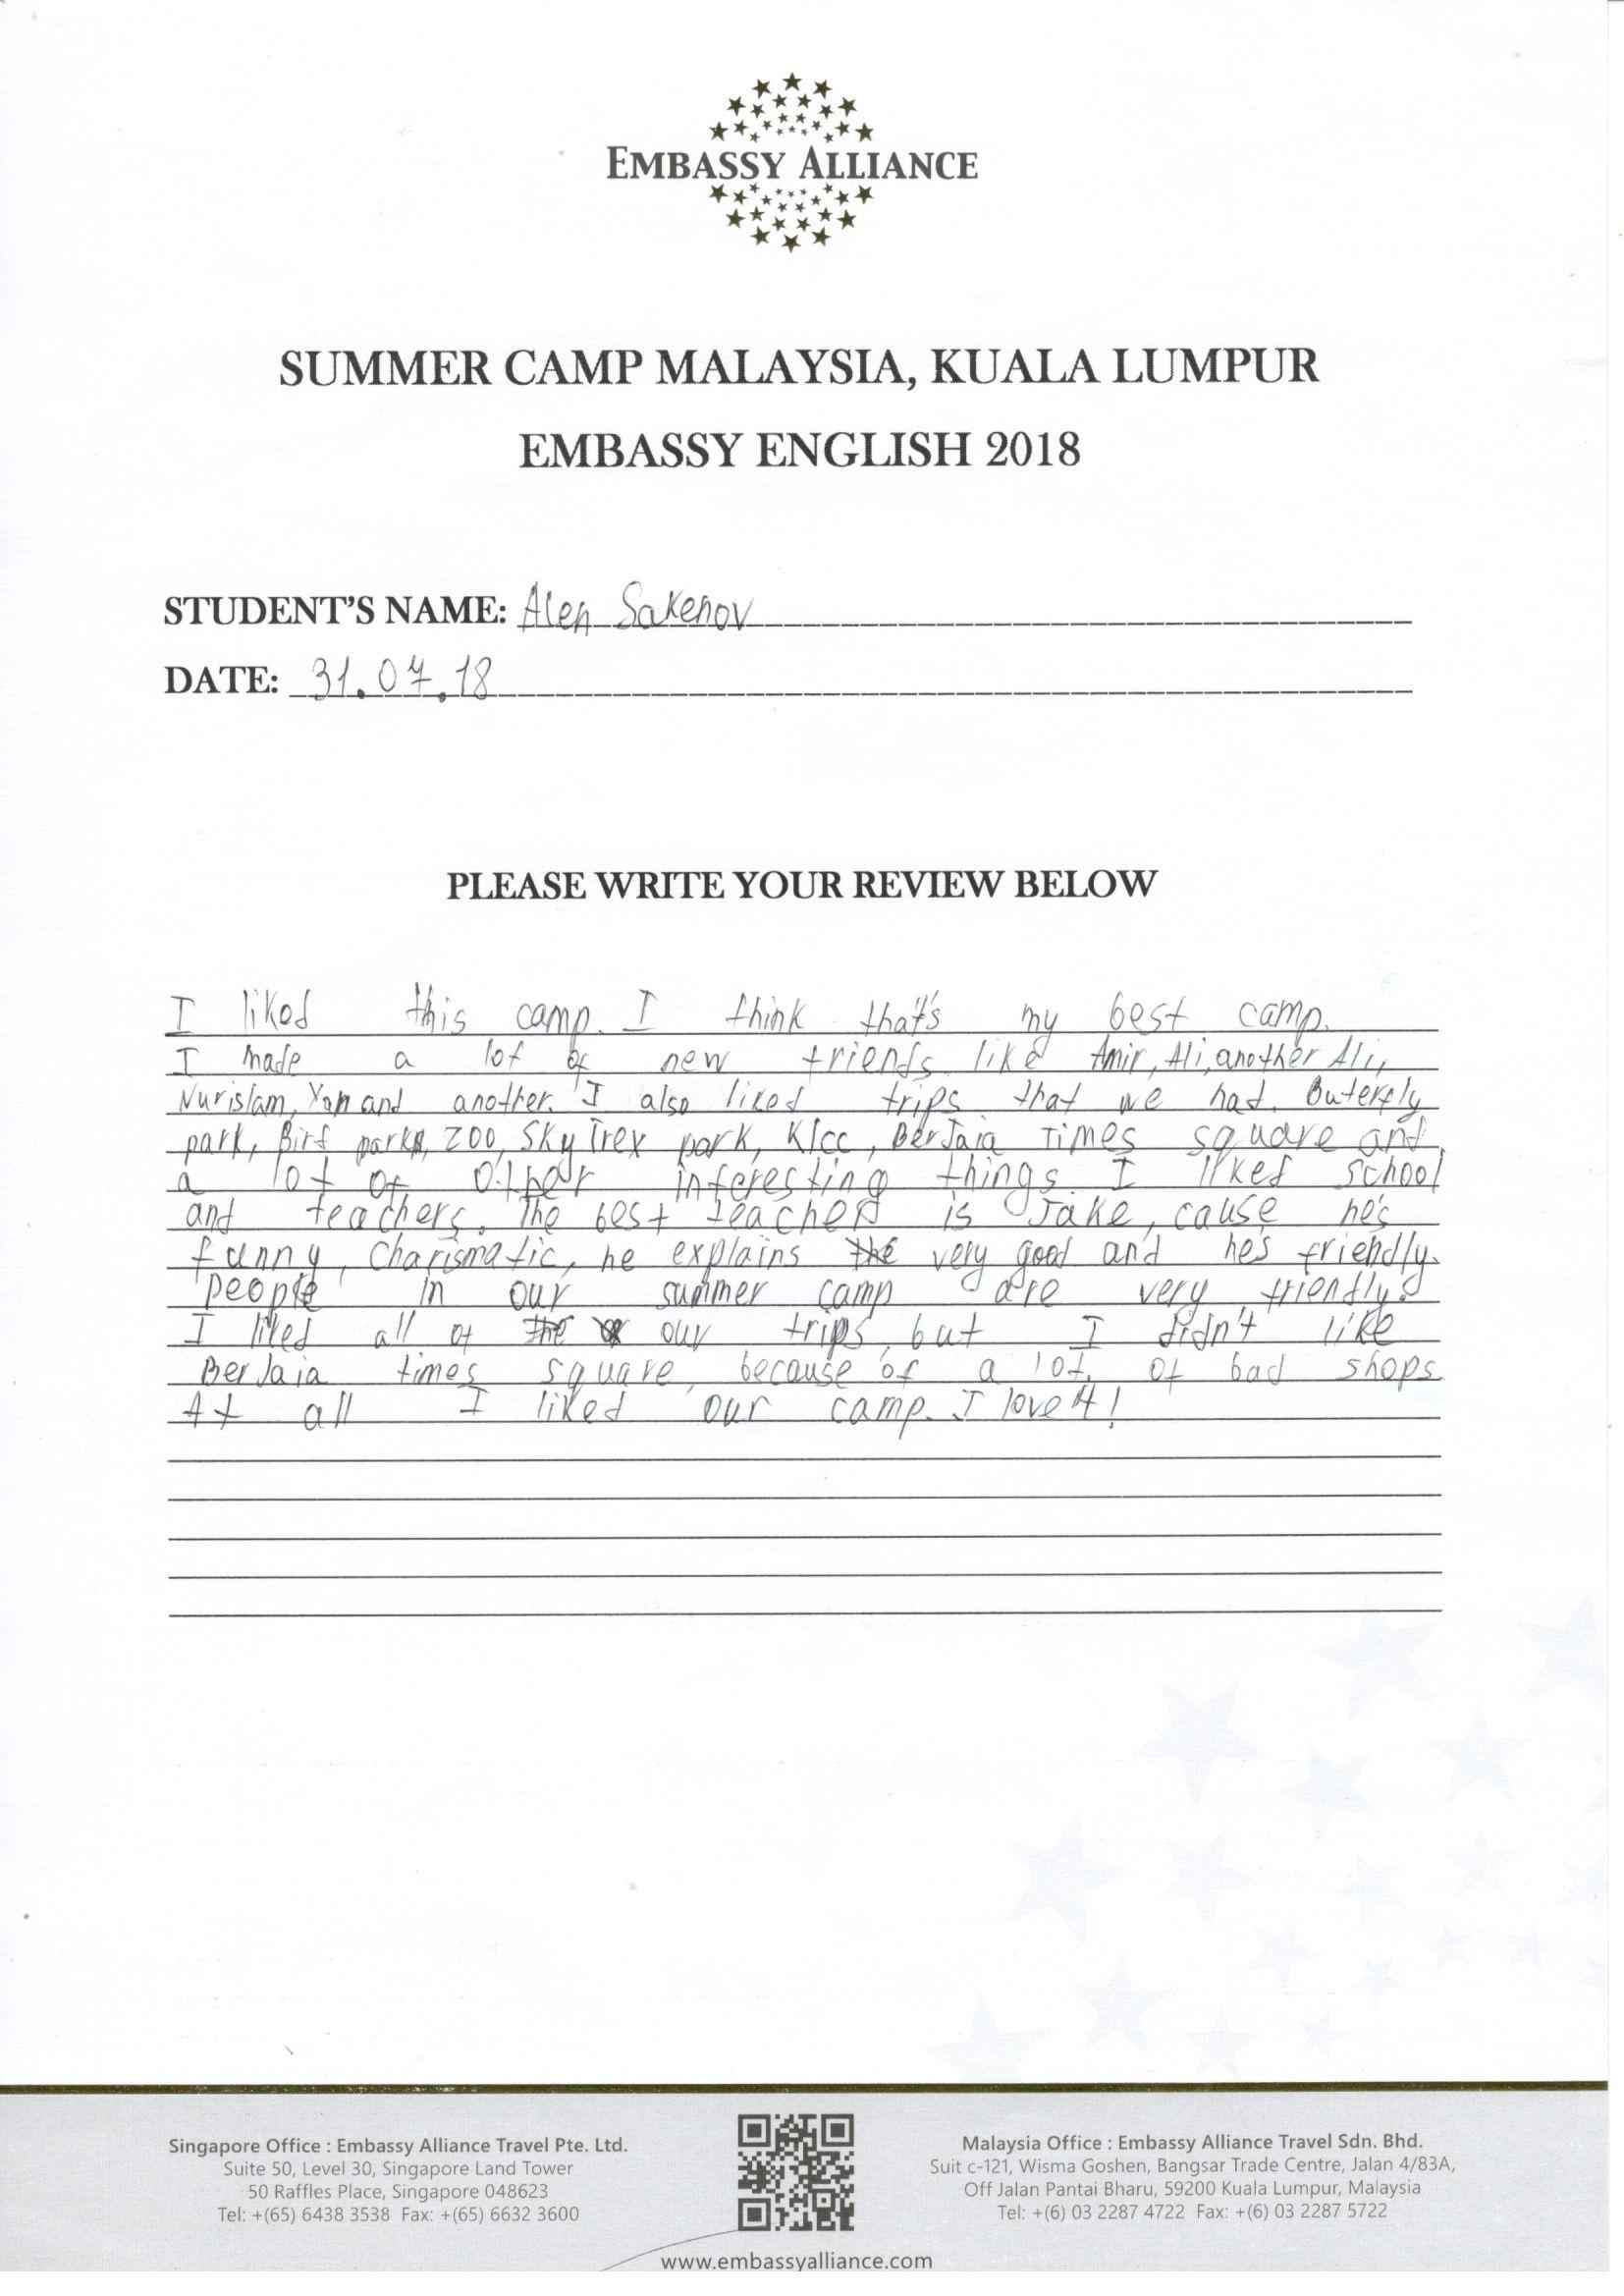 EMBASSY ALLIANCE
SUMMER CAMP MALAYSIA, KUALA LUMPUR
EMBASSY ENGLISH 2018
STUDENT'S NAME: Alen Sakenov
DATE: 31.07.18
PLEASE WRITE YOUR REVIEW BELOW
I liked this camp. I think that's my best camp.
I made a lot of new friends like Amir, Ali, another Ali,
Nurislam, Yan and another. I also liked trips that we had. Buterfly
park, Bird park, zoo, Sky Trex park, Klcc, BerJaia Times square and
a lot of other interesting things. I liked school
and teachers. The best teacher is Jake, cause he's
funny, charismatic, he explains the very good and he's friendly.
people in our summer camp are very friendly.
I liked all of the our trips, but I didn't like
BerJaia times square, because of a lot of bad shops.
At all I liked our camp. I love it!
Singapore Office : Embassy Alliance Travel Pte. Ltd.
Suite 50, Level 30, Singapore Land Tower
50 Raffles Place, Singapore 048623
Tel: +(65) 6438 3538 Fax: +(65) 6632 3600
Malaysia Office : Embassy Alliance Travel Sdn. Bhd.
Suit c-121, Wisma Goshen, Bangsar Trade Centre, Jalan 4/83A,
Off Jalan Pantai Bharu, 59200 Kuala Lumpur, Malaysia
Tel: +(6) 03 2287 4722 Fax: +(6) 03 2287 5722
www.embassyalliance.com